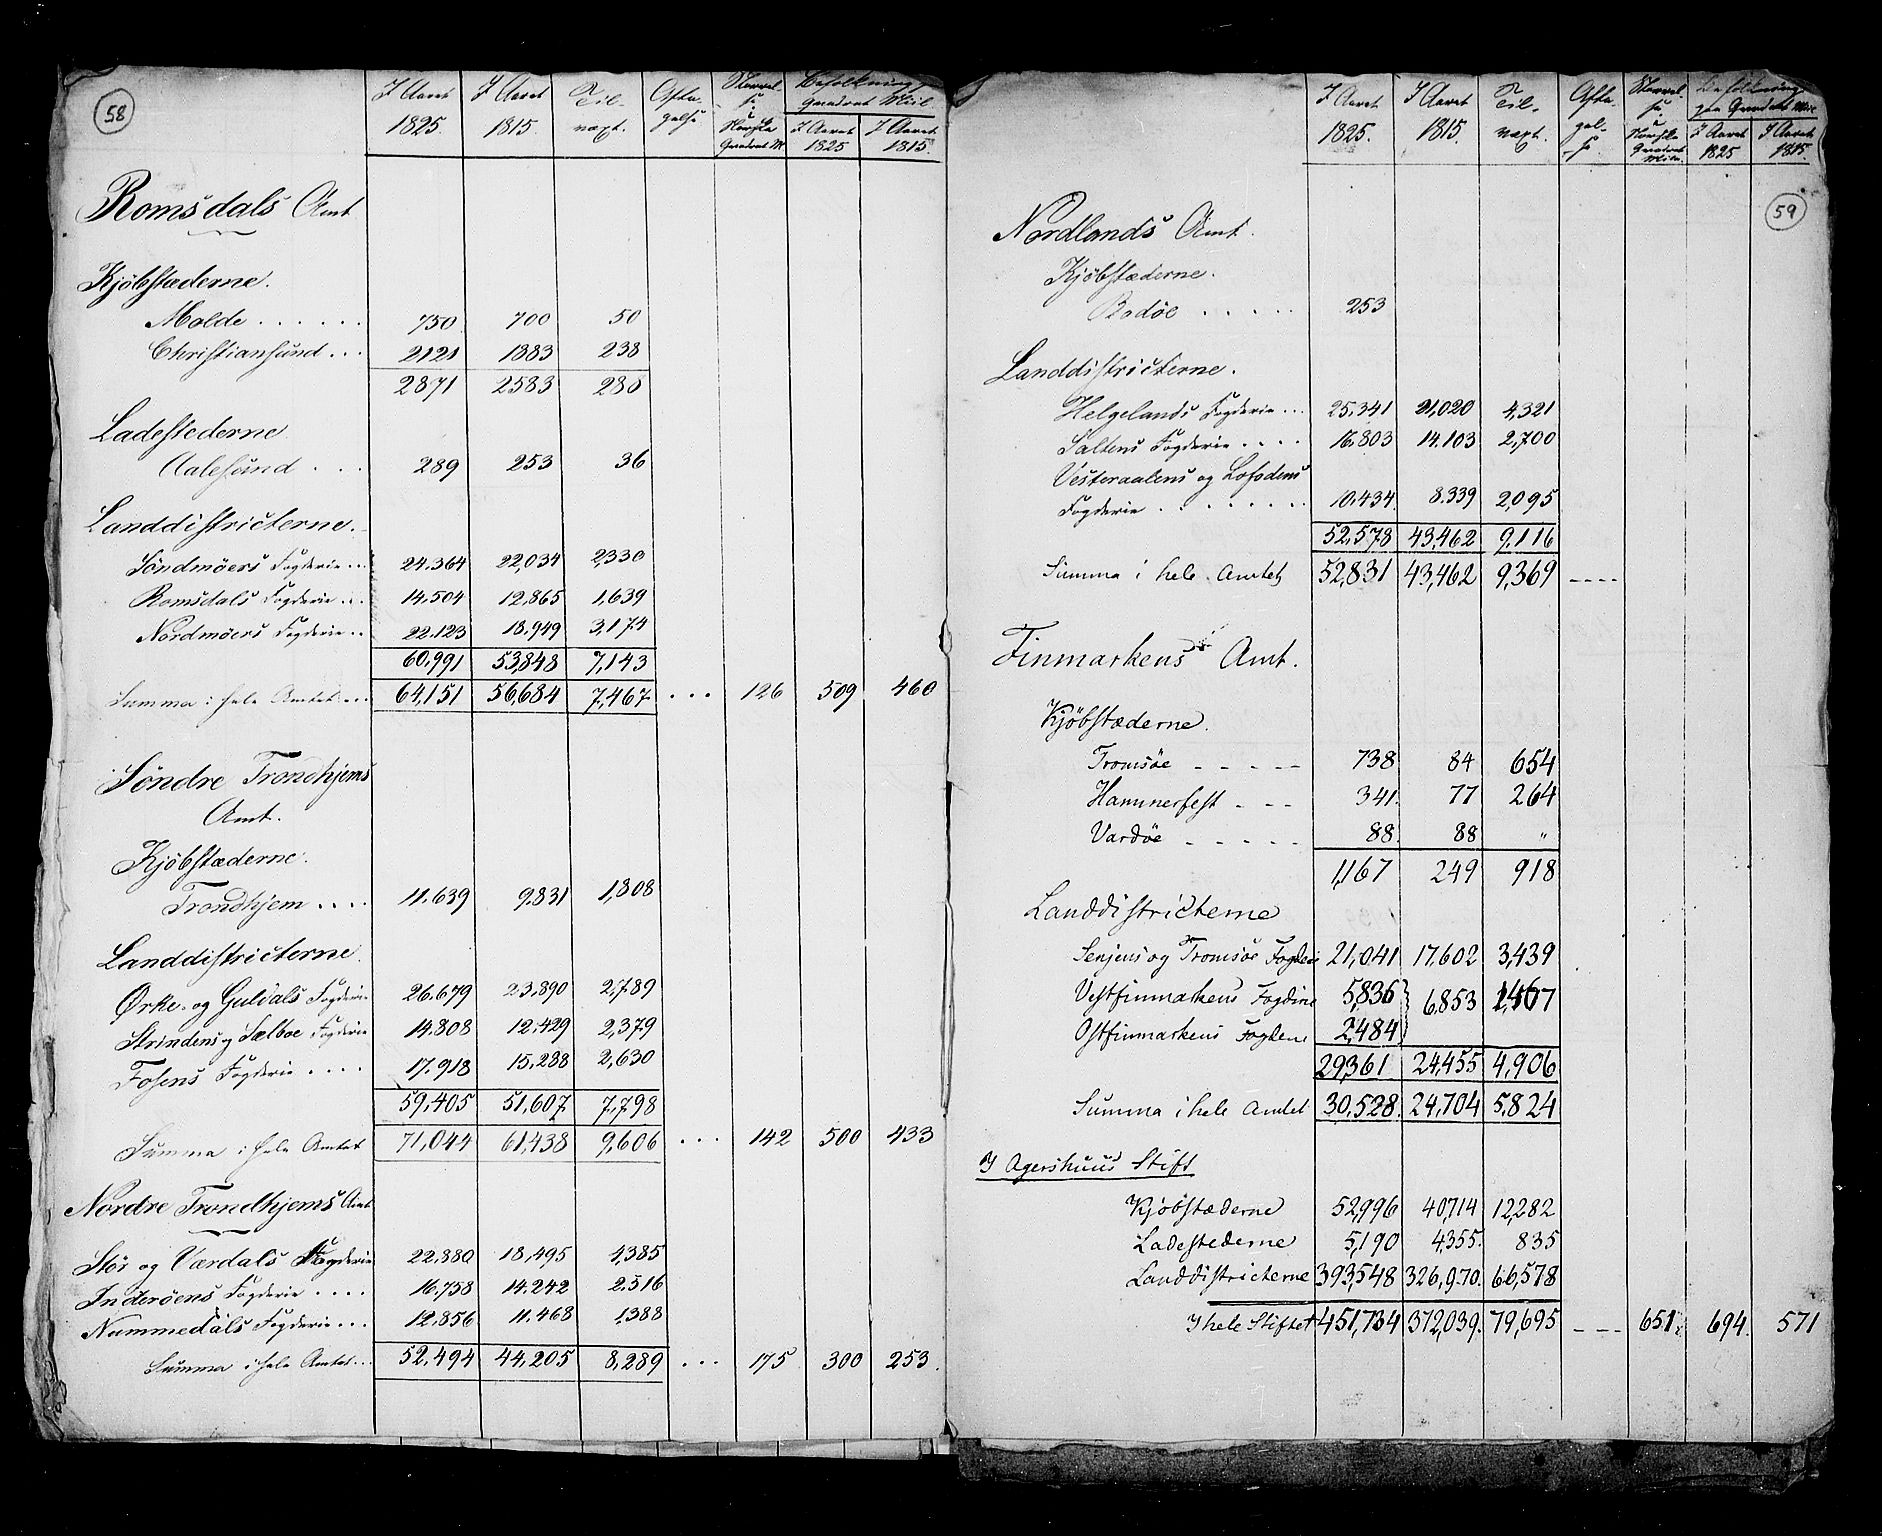 58
I Aaret 1825. | I Aaret 1815. | Til-væxt. | Afta-gelse | Størrel-se. Norske Quadrat M | Befolkning Quadrat Miil | I Aaret 1825 | I Aaret 1815.
Romsdals Amt
Kjöbstæderne.
Molde . . . . . . 750 700 50
Christiansund . . . 2121 1883 238
2871 2583 288
Ladestederne
Aalesund . . . 289 253 36
Landdistricterne.
Söndmöers Fogderie ... 24.364 22,034 2,330
Romsdals Fogderie ... 14.504 12,865 1,639
Nordmöers Fogderie .. 22.123 18.949 3,174
60,991 53,848 7,143
Summa i hele Amtet ... 64,151 56,684 7,467 . . . 126 509 460
Söndre Trondhjems
Amt.
Kjöbstæderne.
Trondhjem . . . . 11.639 9.831 1,808
Landdistricterne.
Ørke- og Guldals Fogderie 26.679 23,890 2,789
Strindens og Sælboe Fogderie 14.808 12,429 2,379
Fosens Fogderie . . . . 17.918 15,288 2,630
59,405 51,607 7,798
Summa i hele Amtet 71,044 61,438 9,606 . . . 142 500 433
Nordre Trondhjems Amt
Stör og Værdals Fogderie 22,880 18,495 4,385
Inderöens Fogderie . . . . 16,758 14.242 2.516
Nummedals Fogderie . . . 12,856 11.468 1,388
Summa i hele Amtet... 52,494 44,205 8,289 . . . 175 300 253.
59
I Aaret 1825. | I Aaret 1815. | Til-væxt. | Afta-gel-se | Størrel-se. Norske Quadrat Mile. | Befolkning paa Quadrat Miil | I Aaret 1825 | I Aaret 1815.
Nordlands Amt.
Kjöbstæderne.
Bodöe . . . . . 253
Landdistricterne.
Helgelands Fogderie ... 25.341 21,020 4,321
Saltens Fogderie . . . . 16.803 14.103 2,700
Vesteraalens og Lofodens
Fogderie . . . . . . . . 10.434 8.339 2,095
52,578 43,462 9.116
Summa i hele Amtet 52,831 43,462 9,369 ----
Finmarkens Amt.
Kjöbstæderne.
Tromsöe - - - - - 738 84 654
Hammerfest - - - 341. 77 264
Vardöe - - - - - 88. 88 "
1,167 249 918
Landdistricterne
Senjens og Tromsöe Fogderie 21,041 17,602 3,439
Vestfinmarkens Fogderie 5,836 } 6,853 1,467
Ostfinmarkens Fogderie 2,484
29,361 24,455 4,906
Summa i hele Amtet 30,528. 24,704 5,824
I Agershuus Stift
Kjöbstæderne 52,996 40,714 12,282
Ladestederne 5,190 4,355. 835
Landdistricterne 393,548 326,970. 66,578
I hele Stiftet 451,734 372,039. 79,695 - - - 651. 694. 571